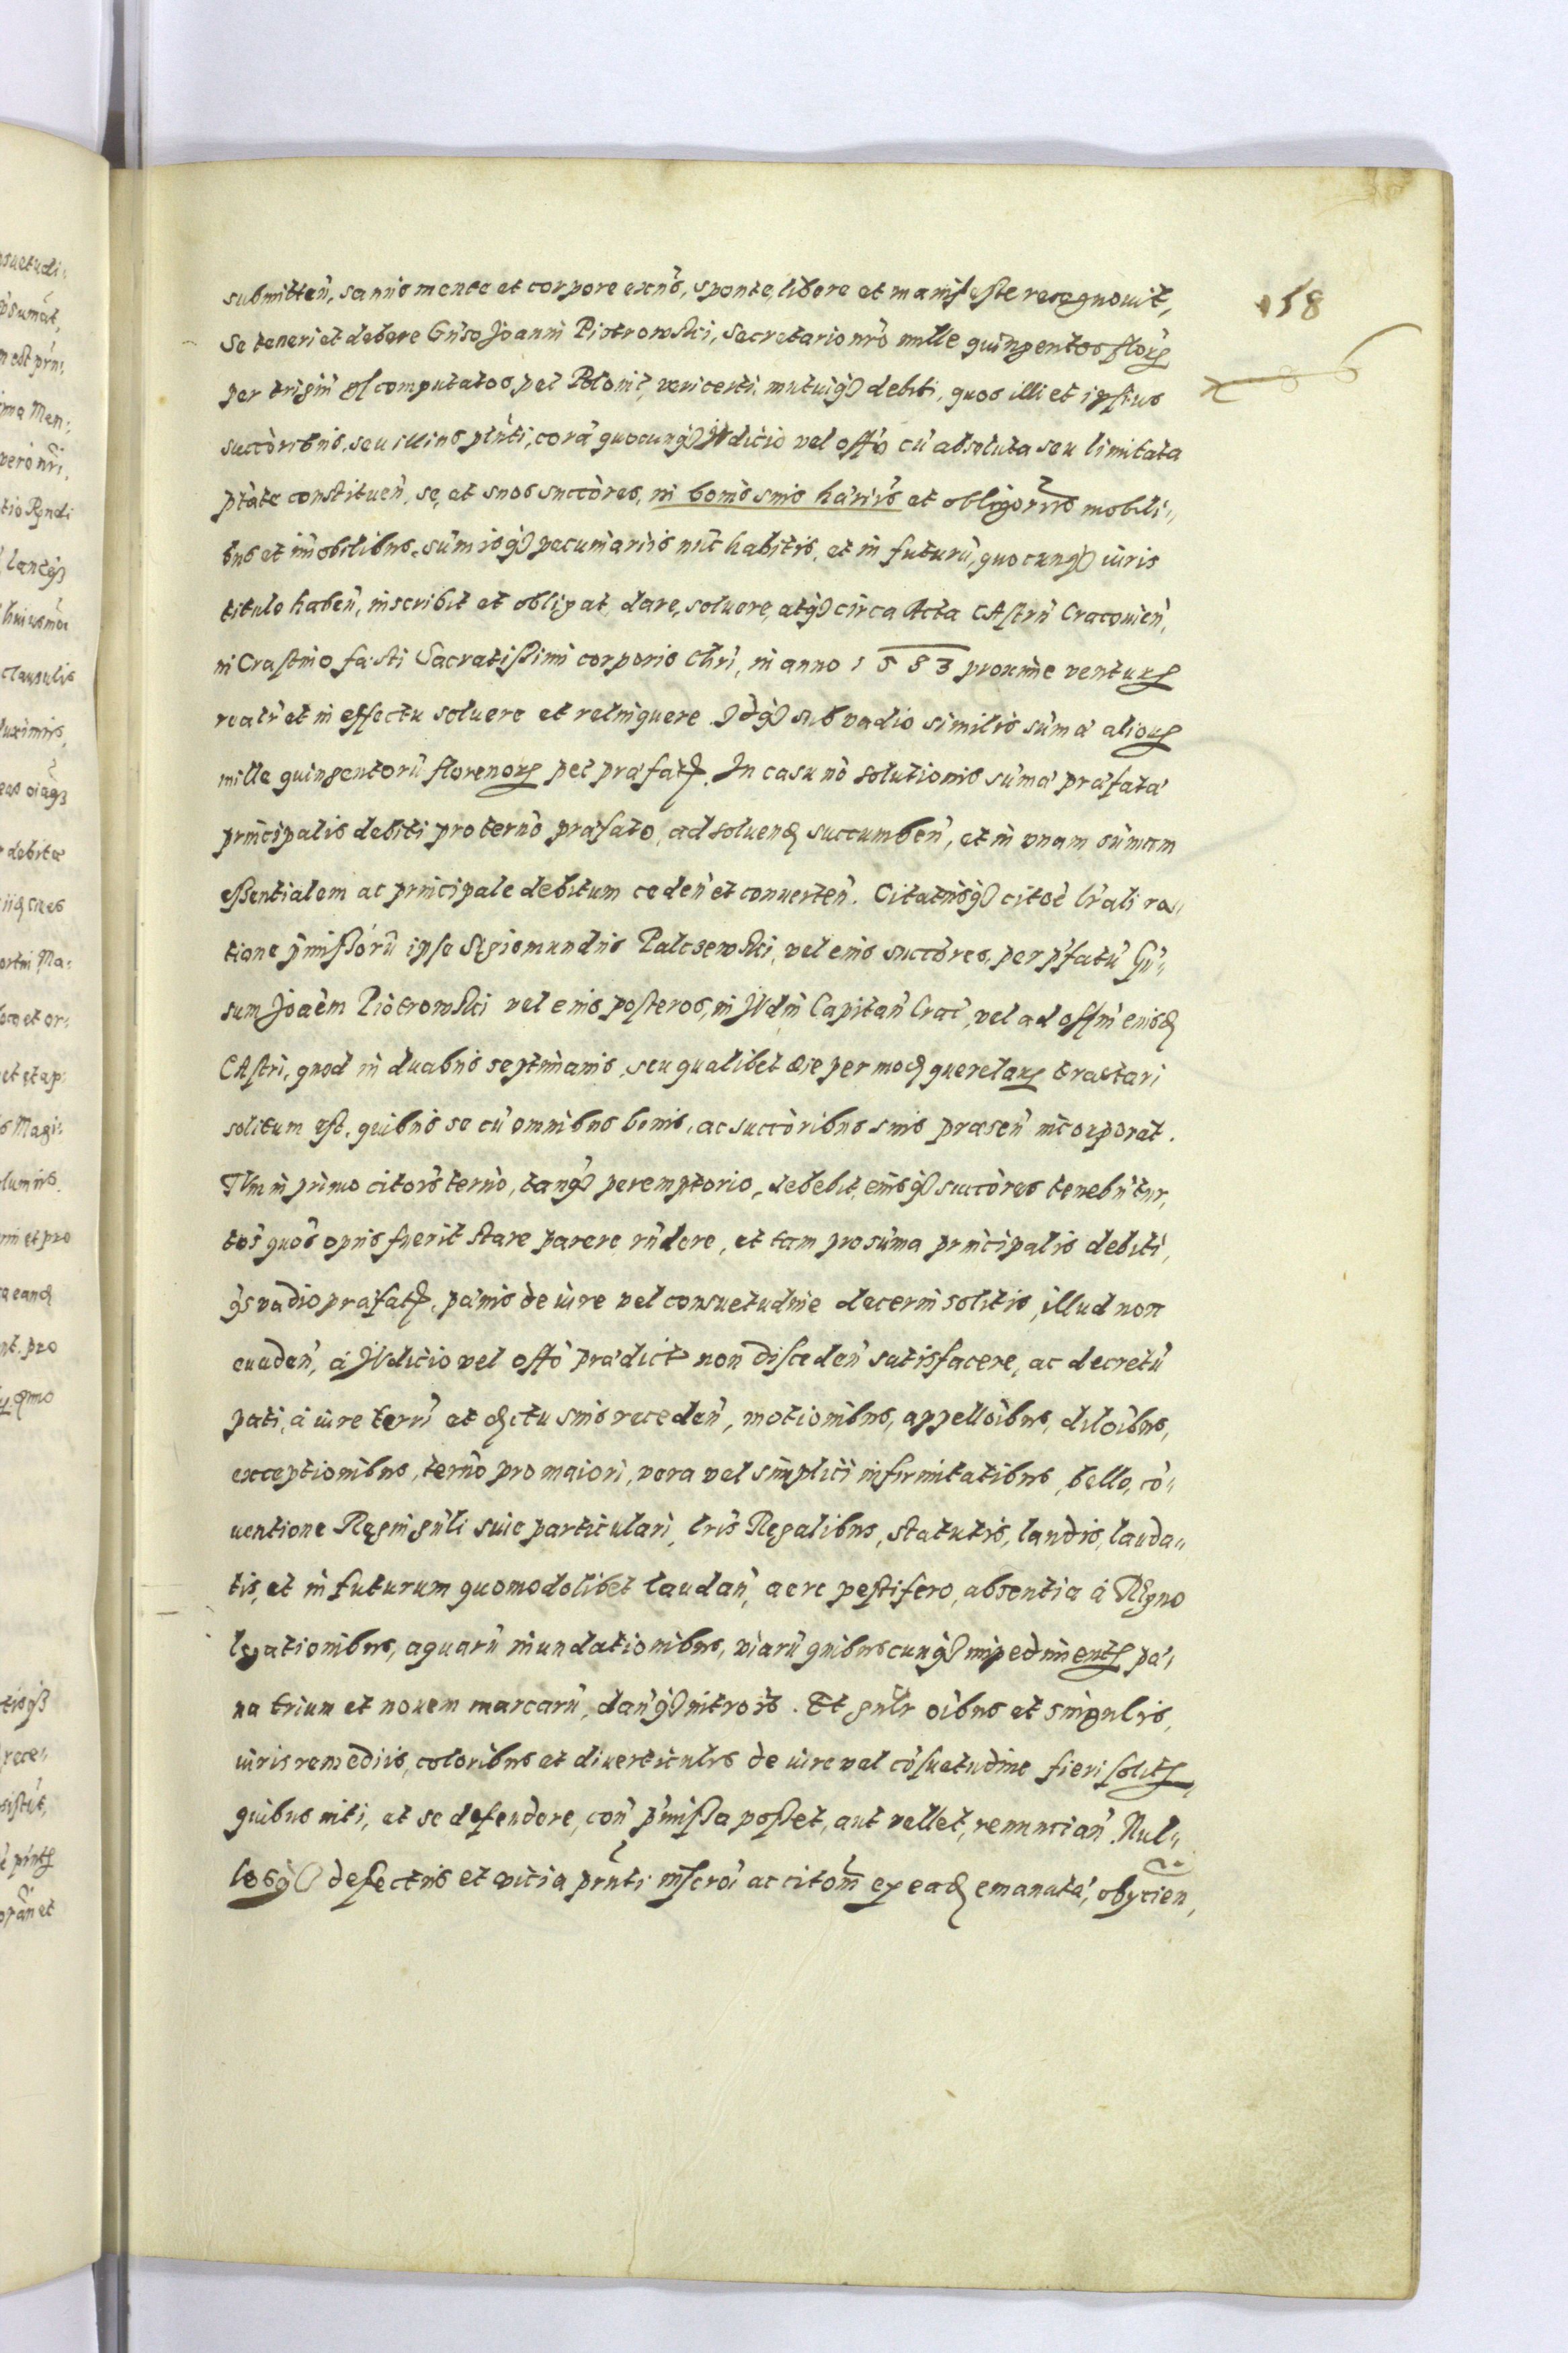 158
submitteñ, sanus mente et corpore exñs, sponte, libere et manifeste recognouit,
Se teneri et debere Gñso Joanni Piotrowski, Secretario nrõ mille quingentos floꝝ
per trigiñ gł computatos, pec Polonic, veri certi mutuiqʒ debiti, quos illi et ipsius
succõribus, seu illius pteñti, corã quocunqʒ Iudicio vel offõ cũ absoluta seu limitata
ptãte constitueñ, se, et suos succõres, in bonis suis hærirs et obligorirs mobili„
bus et immobilibus, sum̃isqʒ pecuniariis nũc habitis, et in futurũ, quocunqʒ iuris
titulo habeñ, inscribit et obligat, dare, soluere, atqʒ circa Acta Castrñ Cracouieñ,
in Crastino festi Sacratißimi corporis Chrĩ, in anno 1583 proxime venturꝝ
realr̃ et in effectu soluere et relinquere Idqʒ sub vadio similis sum̃æ alioꝝ
mille quingentorũ florenoꝝ pec præfatꝝ. In casu nõ solutionis sum̃æ præfatæ
principalis debiti pro termõ præfato, ad soluend succumbeñ, et in vnam sum̃am
eßentialem ac principale debitum cedeñ et conuerteñ. Citatusqʒ citoẽ lrãli ra„
tione p̃mißorũ ipse Sigismundus Palczewski, vel eius succõres, per pfatũ Gñ„
sum Joaẽm Piotrowski vel eius posteros, in Iudm Capitañ Crac, vel ad offm eiusd
Castri, quod in duabus septimanis, seu qualibet die per mod querelaꝝ tractari
solitum est, quibus se cũ omnibus bonis, ac succõribus suis præseñ incorporat.
Tum in primo citoĩs termõ, tanqʒ peremptorio, debebit, eiusqʒ succõres tenebũtur,
tos quos opus fuerit stare parere rñdere, et tam pro sum̃a principalis debiti,
qʒ vadio præfatꝝ, pænis de iure vel consuetudine decerni solitis, illud non
euadeñ, à Iudicio vel offõ prædict non discedeñ satisfacere, ac decretũ
pati, à iure terrĩ et dictu suis recedeñ, motionibus, appelloĩbus, diloĩbus,
exceptionibus, termõ pro maiori, vera vel simplici infirmitatibus, bello, cõ„
uentione Regni gñli siue particulari, lrĩs Regalibus, statutis, laudis, lauda„
tis, et in futurum quomodolibet laudañ, aere pestifero, absentia à Regno
legationibus, aquarũ inundationibus, viarũ quibuscunqʒ impedimentꝝ pæ„
na trium et nouem marcarũ, dañqʒ introĩs. Et gñlr oĩbus et singulis,
iuris remediis, coloribus et diuerticulis de iure vel cõsuetudine fieri solitꝝ,
quibus niti, et se defendere, coñ p̃mißa poßet, aut vellet, renuncian. Nul„
losqʒ defectus et vicia prñti inscroĩ ac citoñi ex ead emanatæ, obyicien,